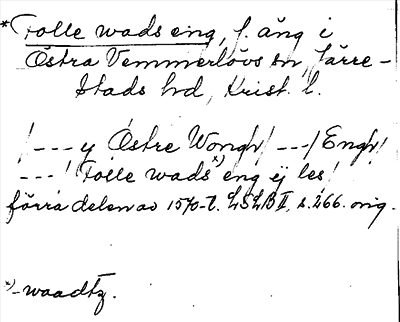 *Tolle wads eng, f. äng i
Östra Vemmerlövs sn, Järre-
stads hd, Krist. l.
/--- y Östre Wongh/ ---/Engh/
---/ Tolle wads x) eng ÿ les/
förra delen av 1570-t. LSLB II, s. 266. orig.
x) -waadtz.